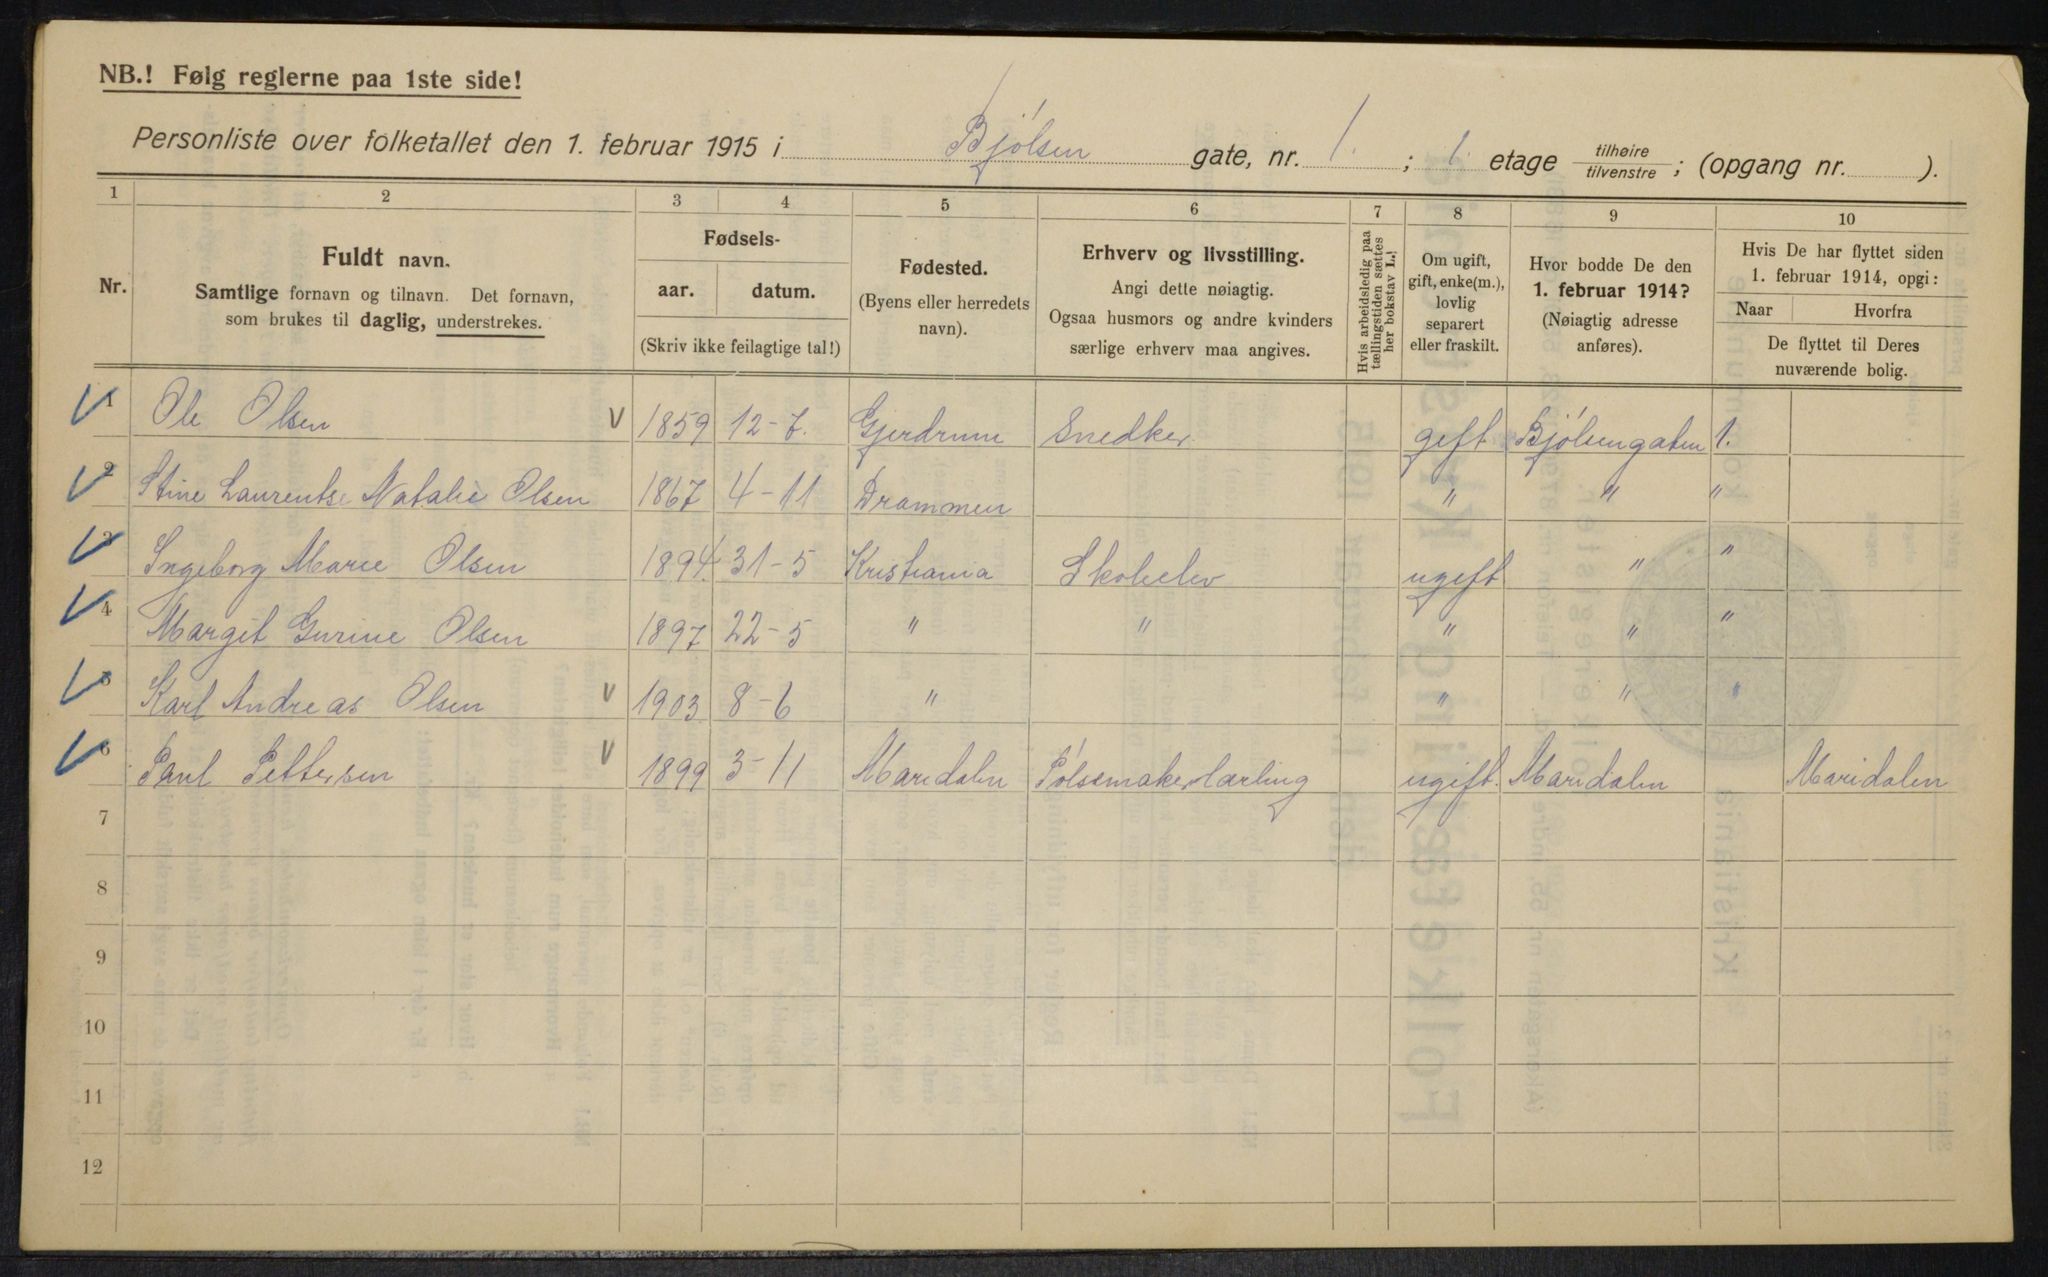 NB.! Følg reglerne paa 1ste side!
Personliste over folketallet den 1. februar 1915 i Bjølsen gate, nr. 1. ; 1. etage tilhøire/tilvenstre ; (opgang nr. ).
1 2 3 4 5 6 7 8 9 10
Nr.
Fuldt navn.
Samtlige fornavn og tilnavn. Det fornavn,
som brukes til daglig, understrekes.
Fødsels-
aar. datum.
(Skriv ikke feilagtige tal!)
Fødested.
(Byens eller herredets
navn).
Erhverv og livsstilling.
Angi dette nøiagtig.
Ogsaa husmors og andre kvinders
særlige erhverv maa angives.
Hvis arbeidsledig paa
tællingstiden sættes
her bokstav L.!
Om ugift,
gift, enke(m.),
lovlig
separert
eller fraskilt.
Hvor bodde De den
1. februar 1914?
(Nøiagtig adresse
anføres).
Hvis De har flyttet siden
1. februar 1914, opgi:
Naar Hvorfra
De flyttet til Deres
nuværende bolig.
1 Ole Olsen 1859 12-7. Gjerdrum Snedker gift Bjølsengaten 1.
2 Stine Laurentse Natalie Olsen 1867 4-11 Drammen " " "
3 Ingeborg Marie Olsen 1894. 31-5 Kristiania Skoleelev ugift " "
4 Margit Gurine Olsen 1897 22-5 " " " " "
5 Karl Andreas Olsen 1903 8-6 " " " "
6 Paul Pettersen 1899 3-11 Maridalen Pølsemakerlærling ugift. Maridalen Maridalen
7
8
9
10
11
12